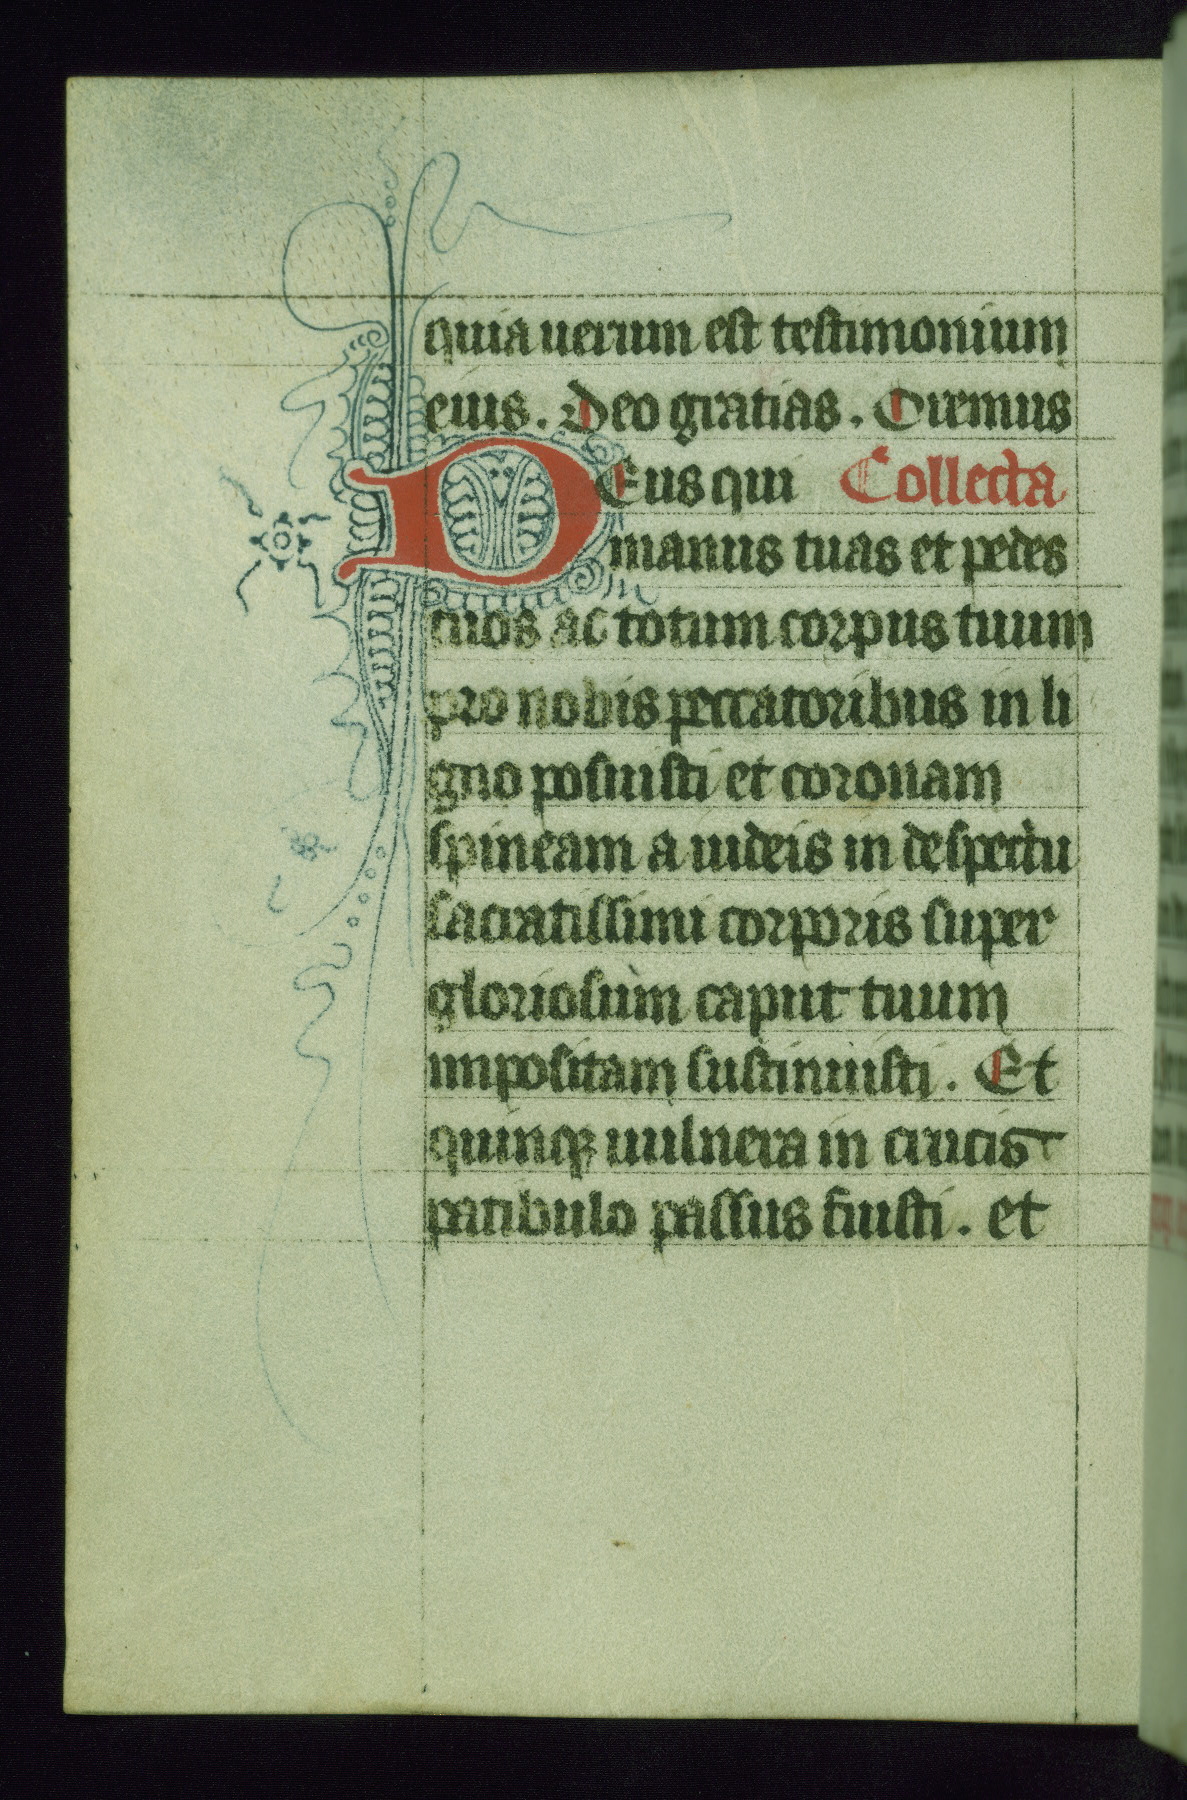 quia uerum est testimonium
eius. Deo gratias. Oremus
DEus qui Collecta
manus tuas et pedes
tuos ac totum corpus tuum
pro nobis peccatoribus in li
gno posuisti et coronam
spineam a iudeis in despectu
sacratissimi corporis super
gloriosum caput tuum
impositam sustinuisti. Et
quinqꝫ uulnera in crucis
patibulo passus fuisti. et